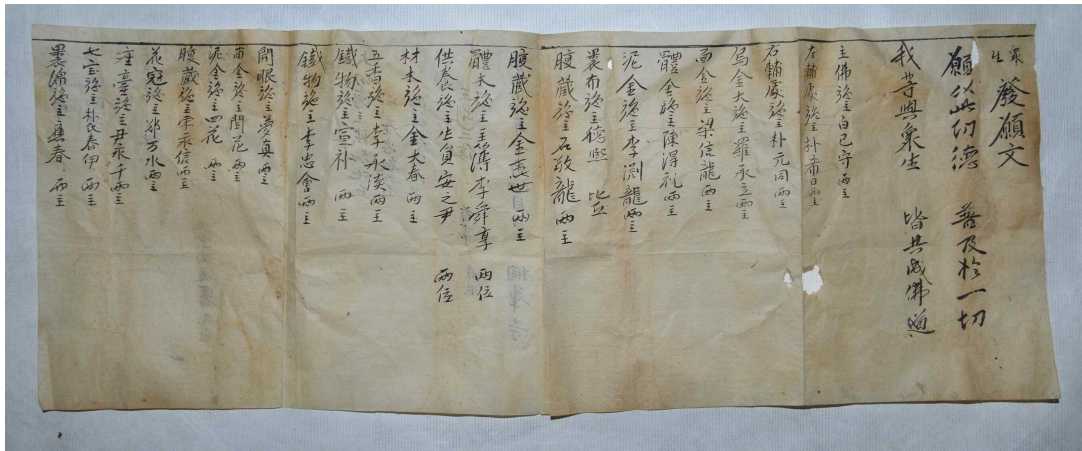 衆生發願文
願以此功德 普及於一切
我等與衆生 皆共成佛道
主佛施主白已守兩主
左補處施主朴希日兩主
右補處施主朴元同兩主
烏金大施主羅承立兩主
面金施主梁信龍兩主
體金施主陳淂礼兩主
泥金施主李澗龍兩主
裹布施主德熙 比丘
腹藏施主石敬龍兩主
腹藏施主金惠世兩主
體木施主主簿李舜享 兩位
供養施主生員安之尹 兩位
材木施主金大春 兩主
五香施主李永淡兩主
鐵物施主宣朴 兩主
鐵物施主李忠會兩主
開眼施主夢真兩主
面金施主閏花兩主
泥金施主四花 兩主
腹藏施主宋永信兩主
花冠施主鄭万水兩主
座臺施主尹永千兩主
七宝施主朴氏春伊兩主
裹綿施主應春 兩主